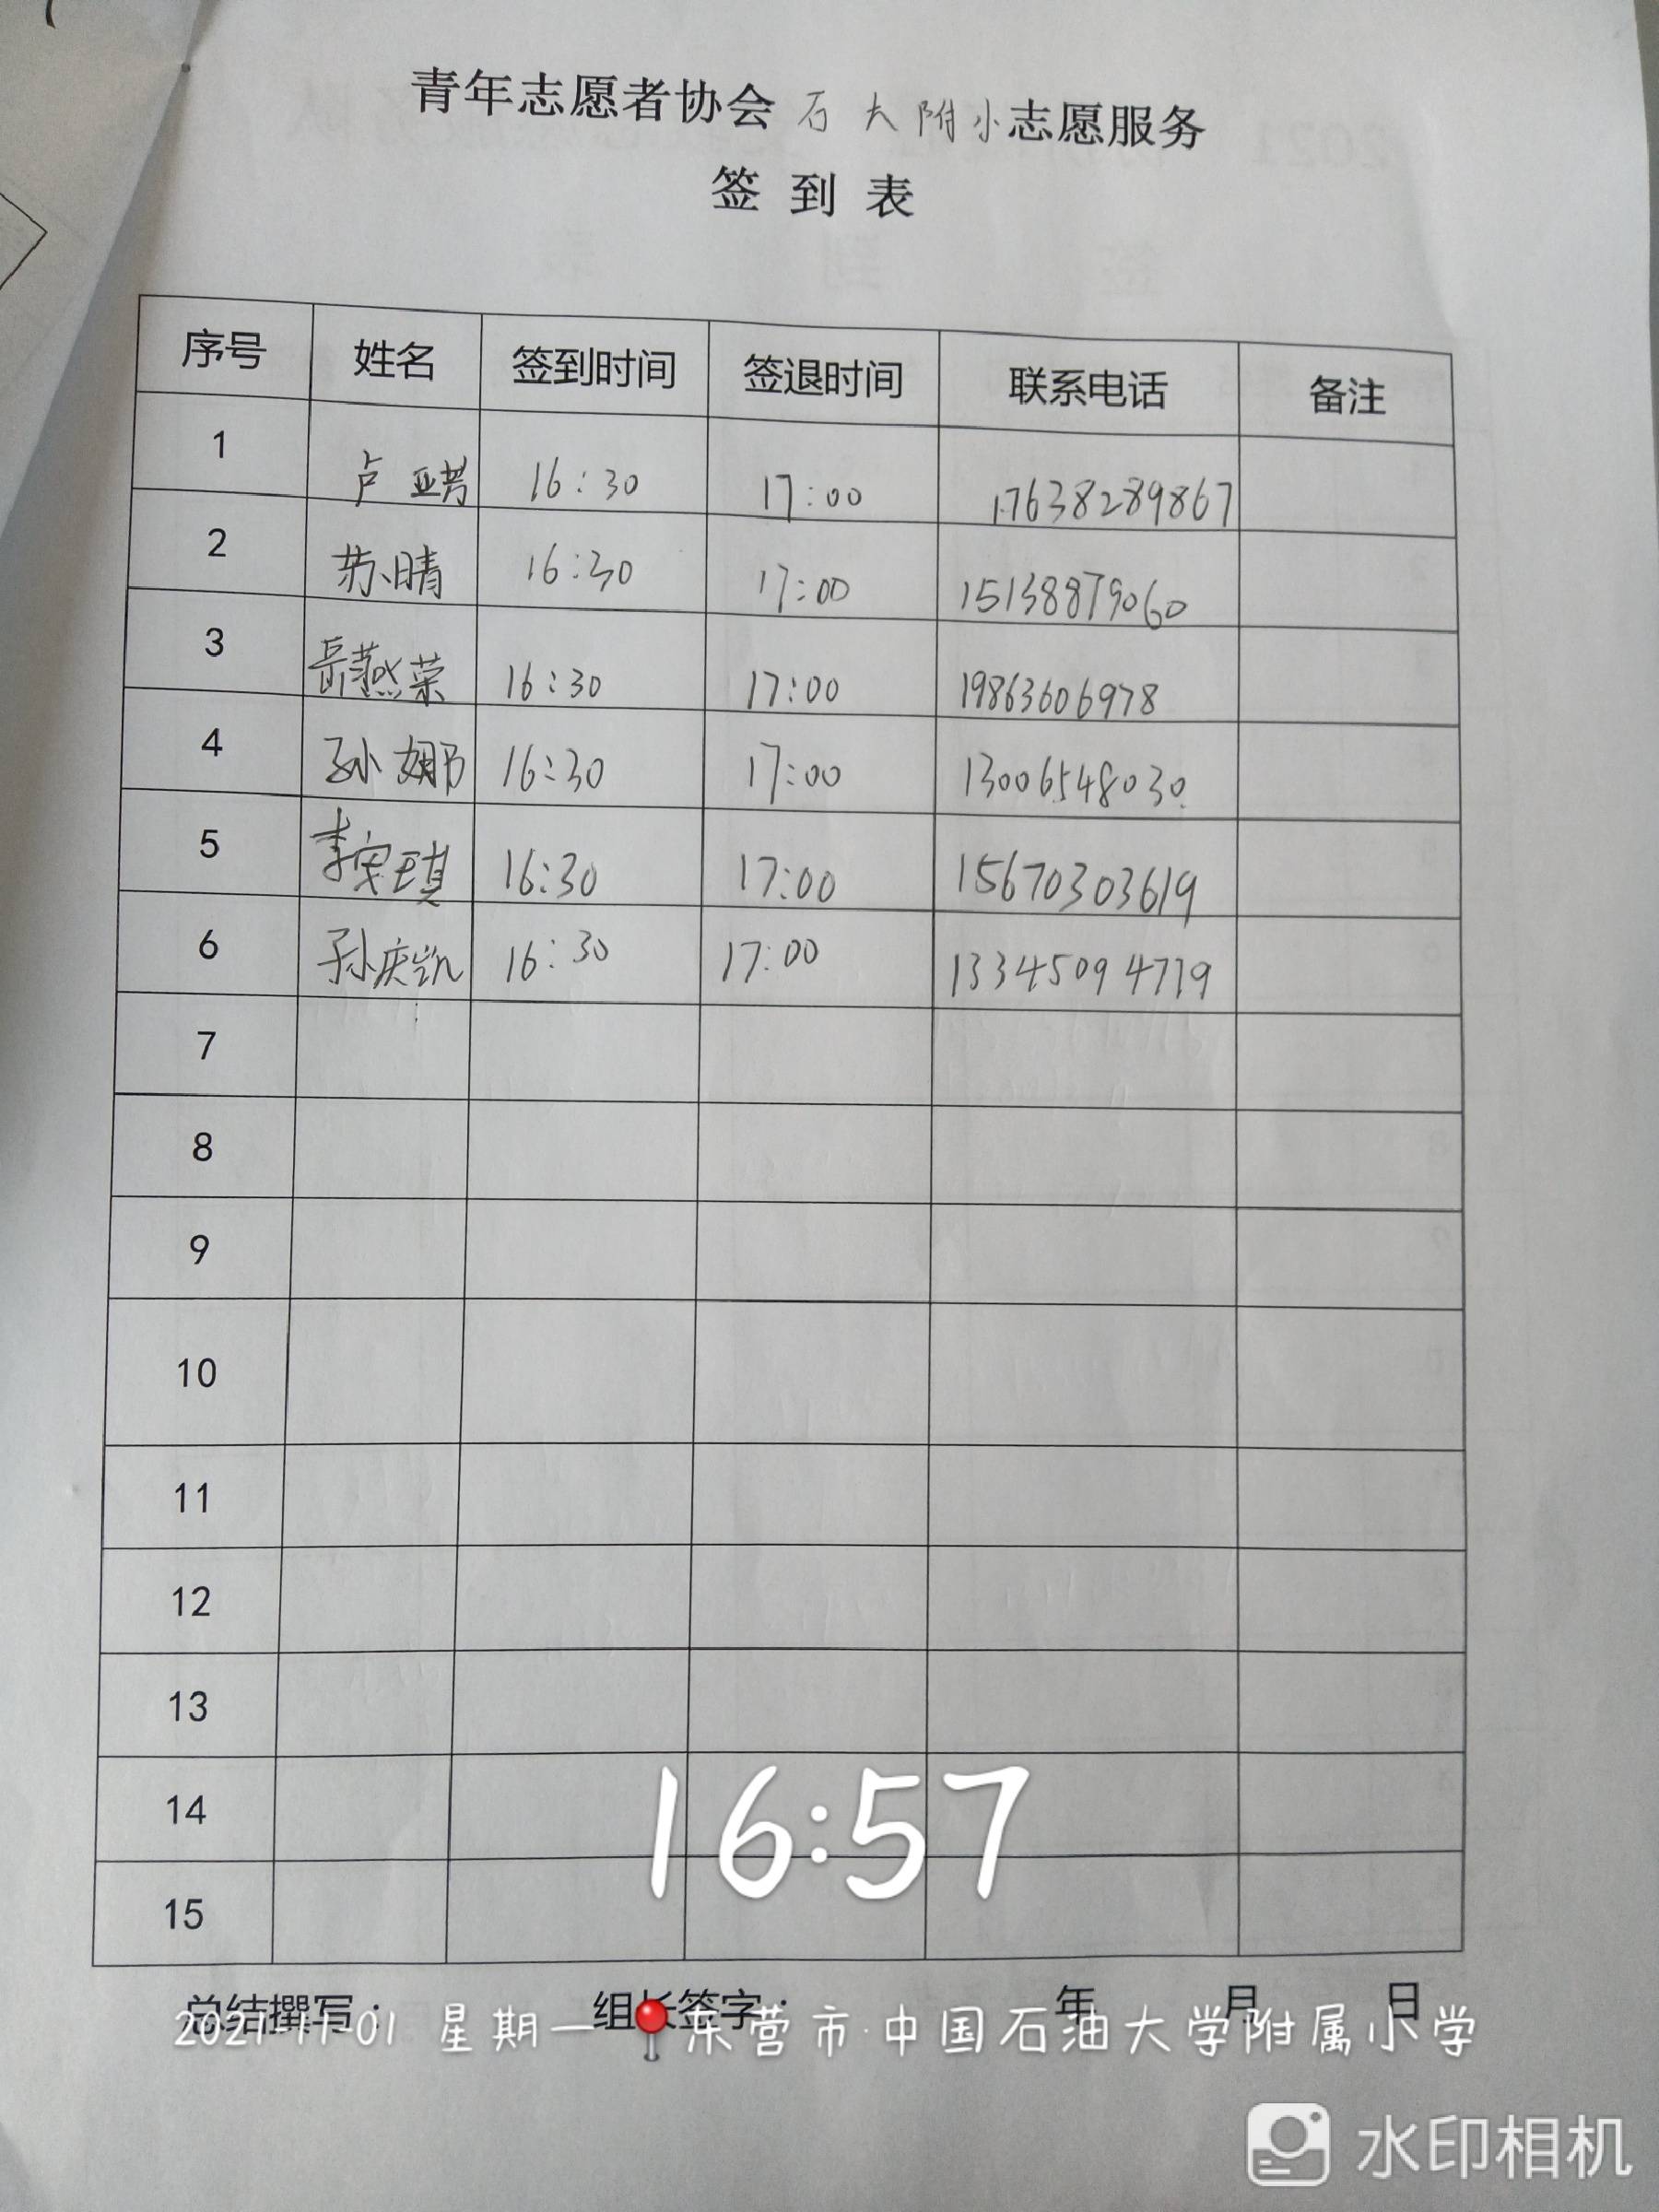 青年志愿者协会石大附小志愿服务
签到表
序号 姓名 签到时间 签退时间 联系电话 备注
1 卢亚芳 16:30 17:00 17638289867
2 苏晴 16:30 17:00 15138879060
3 岳燕荣 16:30 17:00 19863606978
4 孙娜 16:30 17:00 13006548030
5 李安琪 16:30 17:00 15670303619
6 孙庆凯 16:30 17:00 13345094719
7
8
9
10
11
12
13
14
15
16:57
总结撰写： 组长签字： 年 月 日
2021-11-01 星期一 东营市·中国石油大学附属小学
水印相机